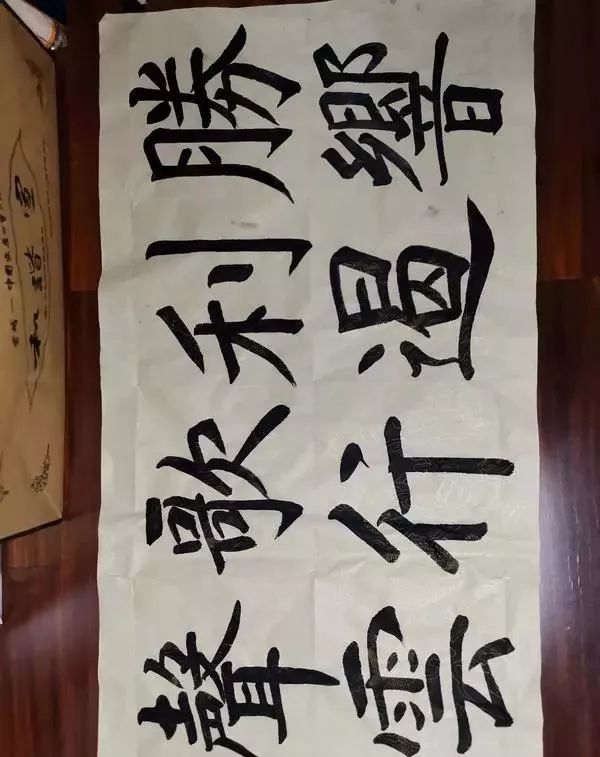 勝利歌聲
響遏行雲